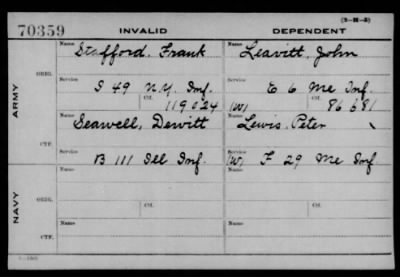 (3-M-3)
70359 INVALID DEPENDENT
Name Name
Stafford, Frank Leavitt, John
ORIG.
Service Service
I 49 N.Y. Inf. E 6 Me Inf.
Ctf. Ctf.
119024 (W) 86681
ARMY
Name Name
Seawell, Dewitt Lewis, Peter
CTF.
Service Service
B 111 Ill Inf. (W) F 29 Me Inf
Name Name
ORIG.
Ctf. Ctf.
NAVY
Name Name
CTF.